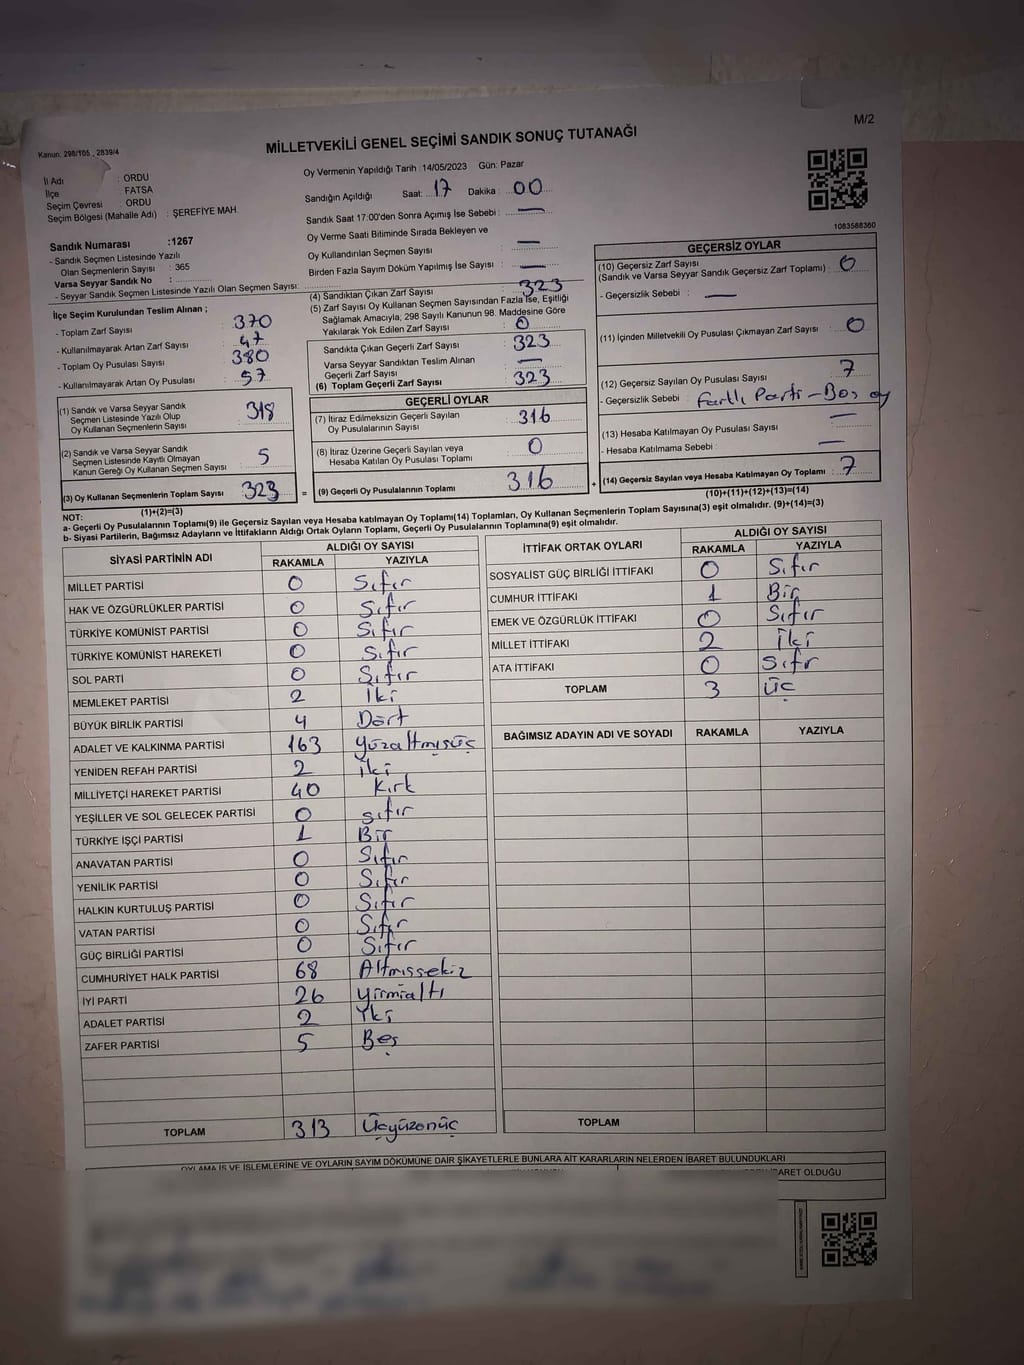 M/2
Kanun: 298/105 , 2839/4
MİLLETVEKİLİ GENEL SEÇİMİ SANDIK SONUÇ TUTANAĞI
İl Adı : ORDU
İlçe : FATSA
Seçim Çevresi : ORDU
Seçim Bölgesi (Mahalle Adı) : ŞEREFİYE MAH.
Sandık Numarası :1267
- Sandık Seçmen Listesinde Yazılı
Olan Seçmenlerin Sayısı : 365
Varsa Seyyar Sandık No :
- Seyyar Sandık Seçmen Listesinde Yazılı Olan Seçmen Sayısı:
Oy Vermenin Yapıldığı Tarih :14/05/2023 Gün: Pazar
Sandığın Açıldığı Saat: 17 Dakika : 00
Sandık Saat 17:00'den Sonra Açımış İse Sebebi : —
Oy Verme Saati Bitiminde Sırada Bekleyen ve
Oy Kullandırılan Seçmen Sayısı : —
Birden Fazla Sayım Döküm Yapılmış İse Sayısı : —
1083588360
İlçe Seçim Kurulundan Teslim Alınan ;
- Toplam Zarf Sayısı : 370
- Kullanılmayarak Artan Zarf Sayısı : 47
- Toplam Oy Pusulası Sayısı : 380
- Kullanılmayarak Artan Oy Pusulası : 57
(1) Sandık ve Varsa Seyyar Sandık
Seçmen Listesinde Yazılı Olup
Oy Kullanan Seçmenlerin Sayısı 318
(2) Sandık ve Varsa Seyyar Sandık
Seçmen Listesinde Kayıtlı Olmayan
Kanun Gereği Oy Kullanan Seçmen Sayısı 5
(3) Oy Kullanan Seçmenlerin Toplam Sayısı 323
(1)+(2)=(3)
(4) Sandıktan Çıkan Zarf Sayısı : 323
(5) Zarf Sayısı Oy Kullanan Seçmen Sayısından Fazla İse, Eşitliği
Sağlamak Amacıyla; 298 Sayılı Kanunun 98. Maddesine Göre
Yakılarak Yok Edilen Zarf Sayısı : 0
Sandıkta Çıkan Geçerli Zarf Sayısı 323
Varsa Seyyar Sandıktan Teslim Alınan
Geçerli Zarf Sayısı —
(6) Toplam Geçerli Zarf Sayısı 323
GEÇERLİ OYLAR
(7) İtiraz Edilmeksizin Geçerli Sayılan
Oy Pusulalarının Sayısı 316
(8) İtiraz Üzerine Geçerli Sayılan veya
Hesaba Katılan Oy Pusulası Toplamı 0
= (9) Geçerli Oy Pusulalarının Toplamı 316 +
GEÇERSİZ OYLAR
(10) Geçersiz Zarf Sayısı
(Sandık ve Varsa Seyyar Sandık Geçersiz Zarf Toplamı) : 0
- Geçersizlik Sebebi : —
(11) İçinden Milletvekili Oy Pusulası Çıkmayan Zarf Sayısı : 0
(12) Geçersiz Sayılan Oy Pusulası Sayısı : 7
- Geçersizlik Sebebi : Farklı Parti - Boş oy
(13) Hesaba Katılmayan Oy Pusulası Sayısı : —
- Hesaba Katılmama Sebebi : —
(14) Geçersiz Sayılan veya Hesaba Katılmayan Oy Toplamı : 7
(10)+(11)+(12)+(13)=(14)
NOT:
a- Geçerli Oy Pusulalarının Toplamı(9) ile Geçersiz Sayılan veya Hesaba katılmayan Oy Toplamı(14) Toplamları, Oy Kullanan Seçmenlerin Toplam Sayısına(3) eşit olmalıdır. (9)+(14)=(3)
b- Siyasi Partilerin, Bağımsız Adayların ve İttifakların Aldığı Ortak Oyların Toplamı, Geçerli Oy Pusulalarının Toplamına(9) eşit olmalıdır.
SİYASİ PARTİNİN ADI ALDIĞI OY SAYISI
RAKAMLA YAZIYLA
MİLLET PARTİSİ 0 Sıfır
HAK VE ÖZGÜRLÜKLER PARTİSİ 0 Sıfır
TÜRKİYE KOMÜNİST PARTİSİ 0 Sıfır
TÜRKİYE KOMÜNİST HAREKETİ 0 Sıfır
SOL PARTİ 0 Sıfır
MEMLEKET PARTİSİ 2 İki
BÜYÜK BİRLİK PARTİSİ 4 Dört
ADALET VE KALKINMA PARTİSİ 163 Yüzaltmışüç
YENİDEN REFAH PARTİSİ 2 İki
MİLLİYETÇİ HAREKET PARTİSİ 40 Kırk
YEŞİLLER VE SOL GELECEK PARTİSİ 0 sıfır
TÜRKİYE İŞÇİ PARTİSİ 1 Bir
ANAVATAN PARTİSİ 0 Sıfır
YENİLİK PARTİSİ 0 Sıfır
HALKIN KURTULUŞ PARTİSİ 0 Sıfır
VATAN PARTİSİ 0 Sıfır
GÜÇ BİRLİĞİ PARTİSİ 0 Sıfır
CUMHURİYET HALK PARTİSİ 68 Altmışsekiz
İYİ PARTİ 26 Yirmialtı
ADALET PARTİSİ 2 İki
ZAFER PARTİSİ 5 Beş
TOPLAM 313 Üçyüzonüç
İTTİFAK ORTAK OYLARI ALDIĞI OY SAYISI
RAKAMLA YAZIYLA
SOSYALİST GÜÇ BİRLİĞİ İTTİFAKI 0 Sıfır
CUMHUR İTTİFAKI 1 Bir
EMEK VE ÖZGÜRLÜK İTTİFAKI 0 Sıfır
MİLLET İTTİFAKI 2 İki
ATA İTTİFAKI 0 Sıfır
TOPLAM 3 Üç
BAĞIMSIZ ADAYIN ADI VE SOYADI RAKAMLA YAZIYLA
TOPLAM
OYLAMA İŞ VE İŞLEMLERİNE VE OYLARIN SAYIM DÖKÜMÜNE DAİR ŞİKAYETLERLE BUNLARA AİT KARARLARIN NELERDEN İBARET BULUNDUKLARI
İBARET OLDUĞU